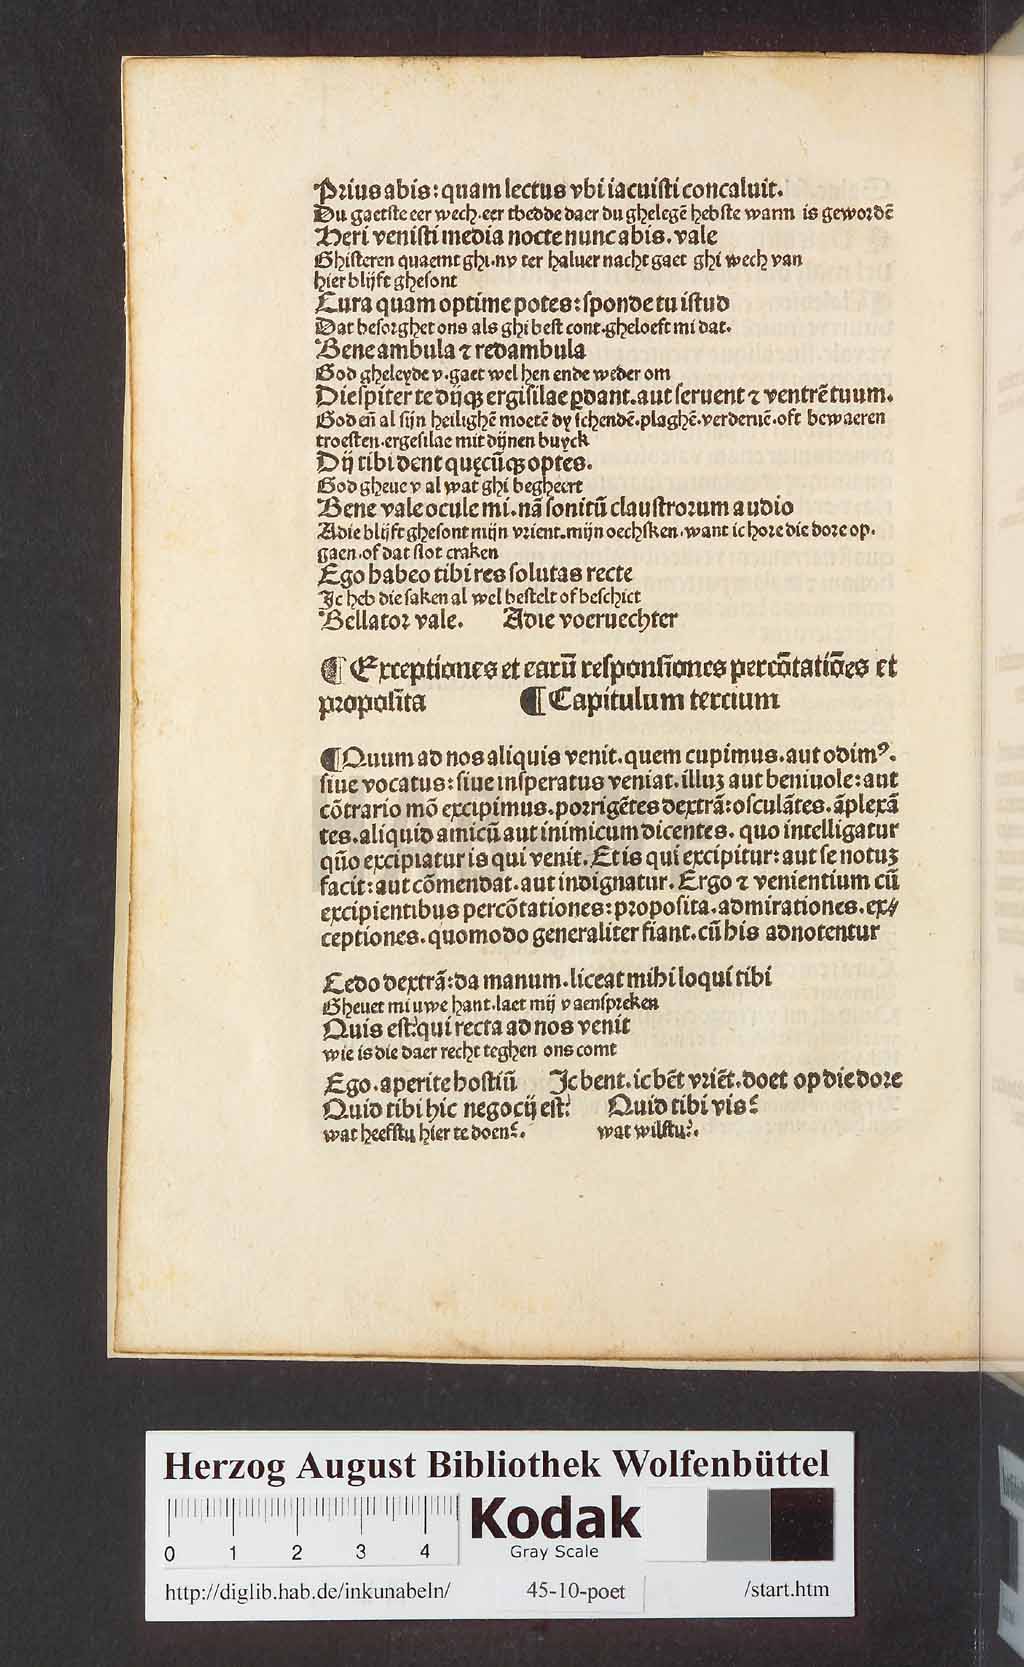 Prius abis: quam lectus vbi iacuisti concaluit.
Du gaetste eer wech. eer tbedde daer du ghelegē hebste warm is gewordē
Heri venisti media nocte nunc abis. vale
Ghisteren quaemt ghi. nv ter haluer nacht gaet ghi wech van
hier blijft ghesont
Cura quam optime potes: sponde tu istud
Dat besorghet ons als ghi best cont. gheloeft mi dat.
Bene ambula ⁊ redambula
God gheleyde v. gaet wel hen ende weder om
Diespiter te dijqꝫ ergisilae ꝑdant. aut seruent ⁊ ventrē tuum.
God eñ al sijn heilighē moetē dy schendē. plaghē. verderuē. oft bewaeren
troesten. ergesilae mit dijnen buyck
Dij tibi dent quęcūqꝫ optēs.
God gheue v al wat ghi begheert
Bene vale ocule mi. nā sonitū claustrorum audio
Adie blijft ghesont mijn vrient. mijn oechsken. want ic hore die dore op.
gaen. of dat slot craken
Ego habeo tibi res solutas recte
Ic heb die saken al wel bestelt of beschict
Bellator vale. Adie voeruechter
¶ Exceptiones et earū responsiones percōtatiōes et
proposita ¶ Capitulum tercium
¶ Quum ad nos aliquis venit. quem cupimus. aut odimꝰ.
siue vocatus: siue insperatus veniat. illuꝫ aut beniuole: aut
cōtrario mō excipimus. porrigētes dextrā: osculātes. āplexā
tes. aliquid amicū aut inimicum dicentes. quo intelligatur
qūo excipiatur is qui venit. Et is qui excipitur: aut se notuꝫ
facit: aut cōmendat. aut indignatur. Ergo ⁊ venientium cū
excipientibus percōtationes: proposita. admirationes. ex⸗
ceptiones. quomodo generaliter fiant. cū his adnotentur
Cedo dextrā: da manum. liceat mihi loqui tibi
Gheuet mi uwe hant. laet mij v aenspreken
Quis est? qui recta ad nos venit
wie is die daer recht teghen ons comt
Ego. aperite hostiū Ic bent. ic bēt vriēt. doet op die dore
Quid tibi hic negocij est? Quid tibi vis?
wat heefstu hier te doen?. wat wilstu?.
Herzog August Bibliothek Wolfenbüttel
0 1 2 3 4
Kodak
Gray Scale
http://diglib.hab.de/inkunabeln/ 45-10-poet /start.htm